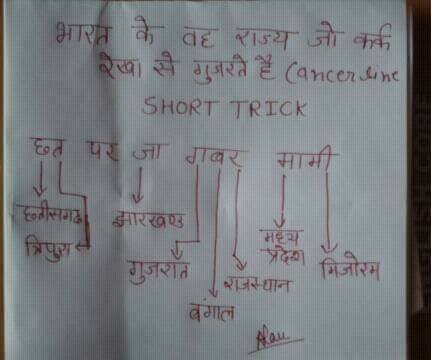 भारत के वह राज्य जो कर्क
रेखा से गुजरते है (Cancer line
SHORT TRICK
छत पर जा गबर मामी
छत्तीसगढ़ झारखण्ड मध्य
त्रिपुरा प्रदेश
गुजरात राजस्थान मिजोरम
बंगाल